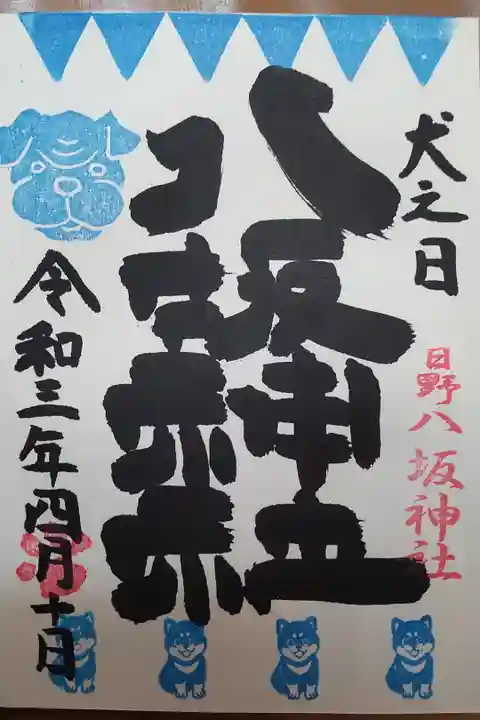 犬之日
日野八坂神社
八坂神社
令和三年四月十日